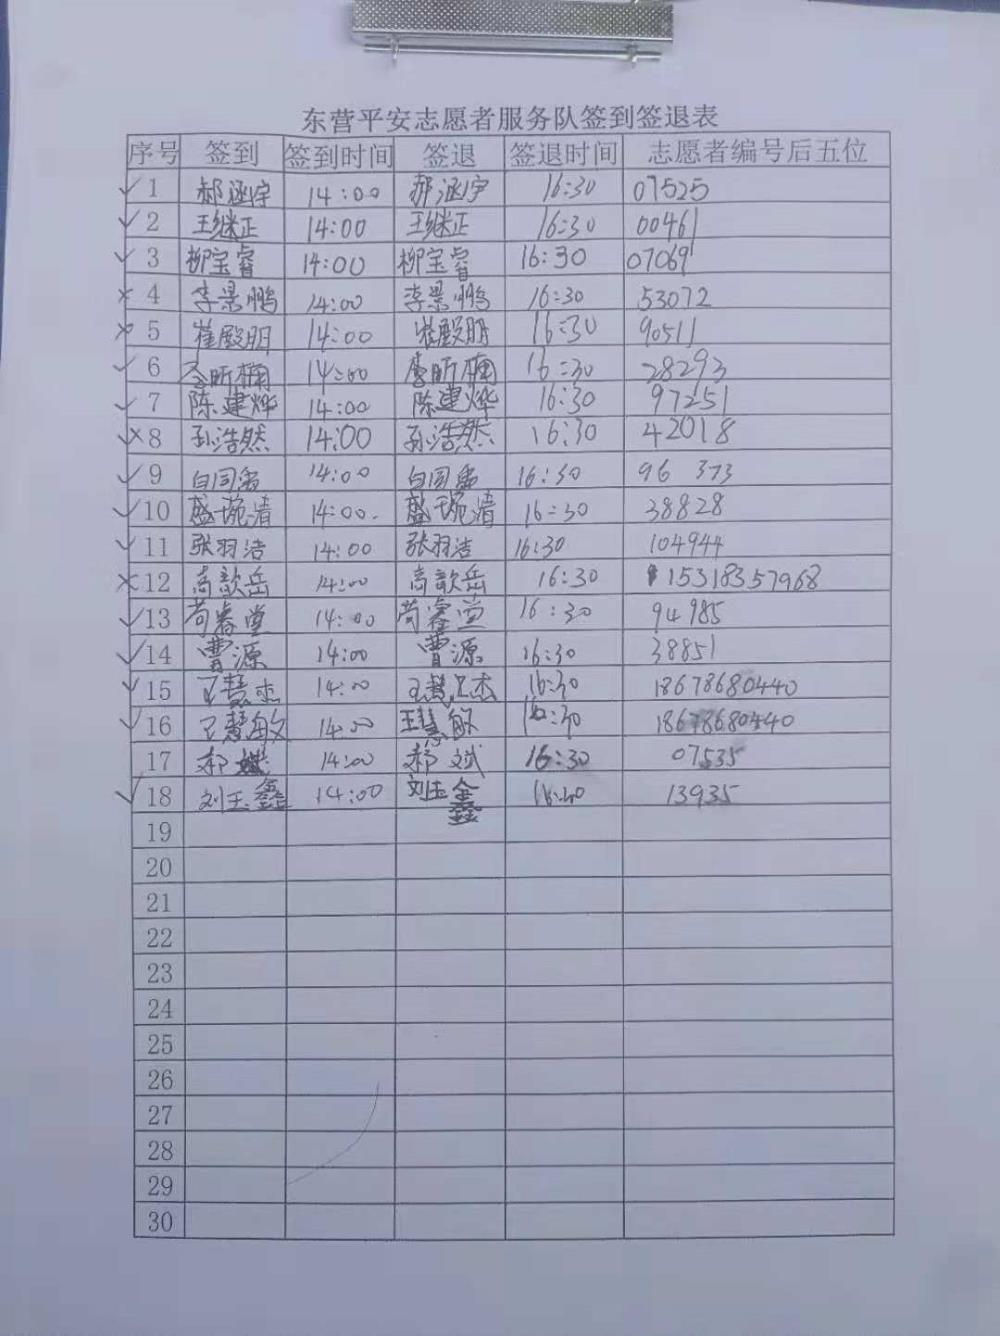 东营平安志愿者服务队签到签退表
序号 签到 签到时间 签退 签退时间 志愿者编号后五位
✓ 1 郝涵宇 14:00 郝涵宇 16:30 07525
✓ 2 王继正 14:00 王继正 16:30 00461
✓ 3 柳宝睿 14:00 柳宝睿 16:30 07069
× 4 李景鹏 14:00 李景鹏 16:30 53072
× 5 崔殿明 14:00 崔殿明 16:30 90511
✓ 6 李昕楠 14:00 李昕楠 16:30 28293
✓ 7 陈建烨 14:00 陈建烨 16:30 97251
✓× 8 孙浩然 14:00 孙浩然 16:30 42018
✓ 9 白同禹 14:00 白同禹 16:30 96 373
✓ 10 盛琬清 14:00. 盛琬清 16:30 38828
✓ 11 张羽洁 14:00 张羽洁 16:30 104944
× 12 高歆岳 14:00 高歆岳 16:30 15318357968
✓ 13 苟睿堂 14:00 苟睿堂 16:30 94985
✓ 14 曹源 14:00 曹源 16:30 38851
✓ 15 王慧杰 14:00 王慧杰 16:30 18678680440
✓ 16 王慧敏 14:00 王慧敏 16:30 18678680440
17 郝斌 14:00 郝斌 16:30 07535
✓ 18 刘玉鑫 14:00 刘玉鑫 16:30 13935
19
20
21
22
23
24
25
26
27
28
29
30